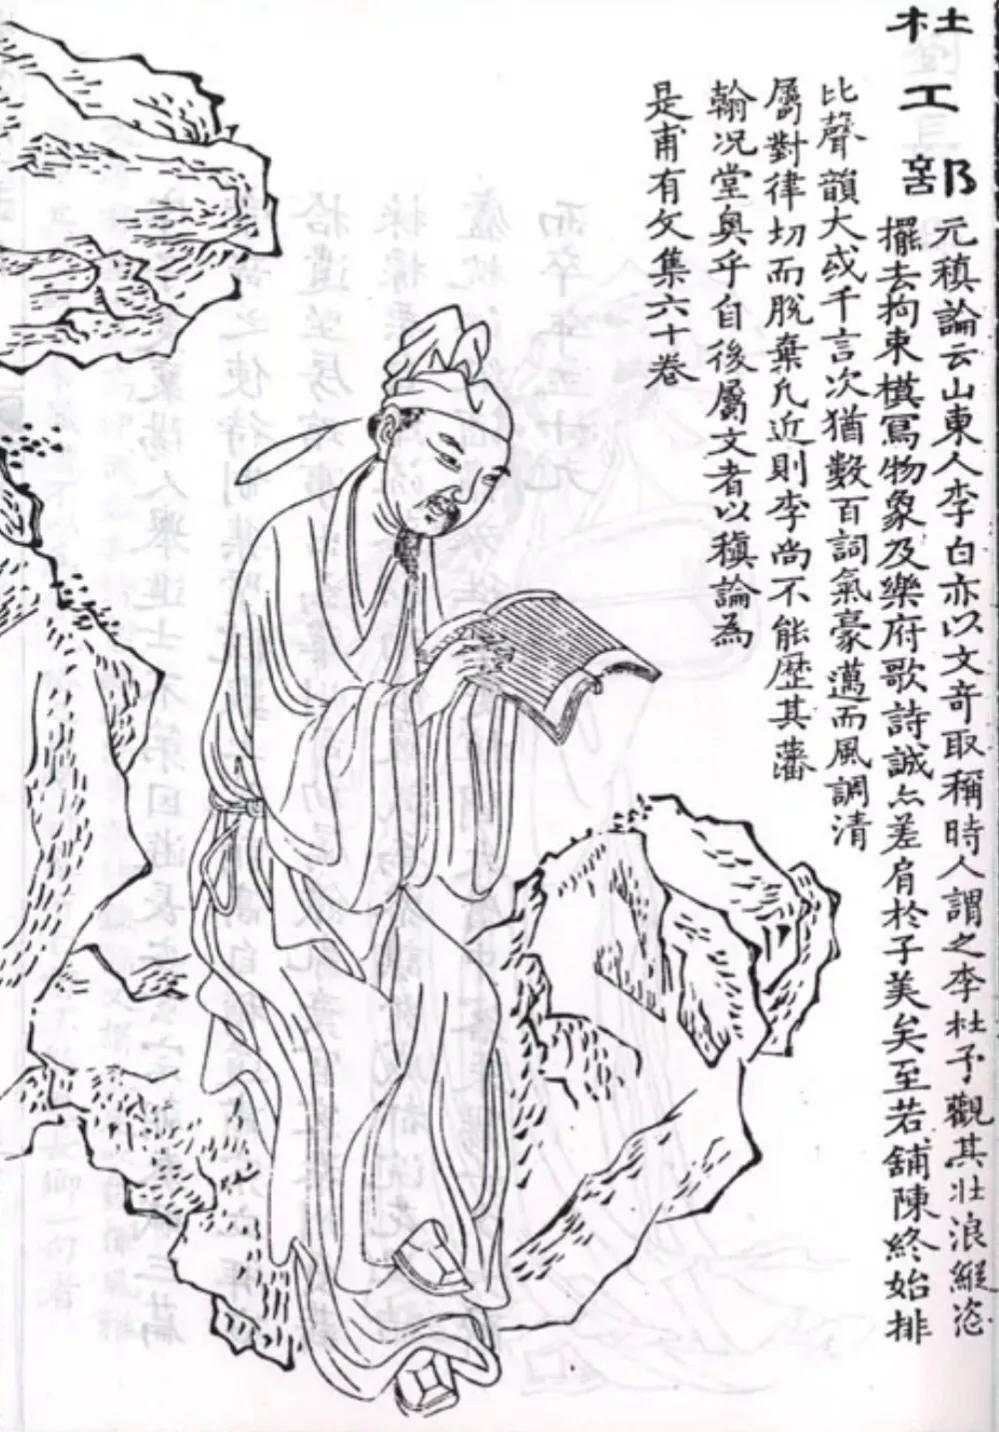 杜工部
元稹論云山東人李白亦以文奇取稱時人謂之李杜予觀其壯浪縱恣
擺去拘束模寫物象及樂府歌詩誠亦差肩於子美矣至若舖陳終始排
比聲韻大或千言次猶數百詞氣豪邁而風調清
屬對律切而脫棄凡近則李尚不能歷其藩
翰况堂奥乎自後屬文者以稹論為
是甫有文集六十卷